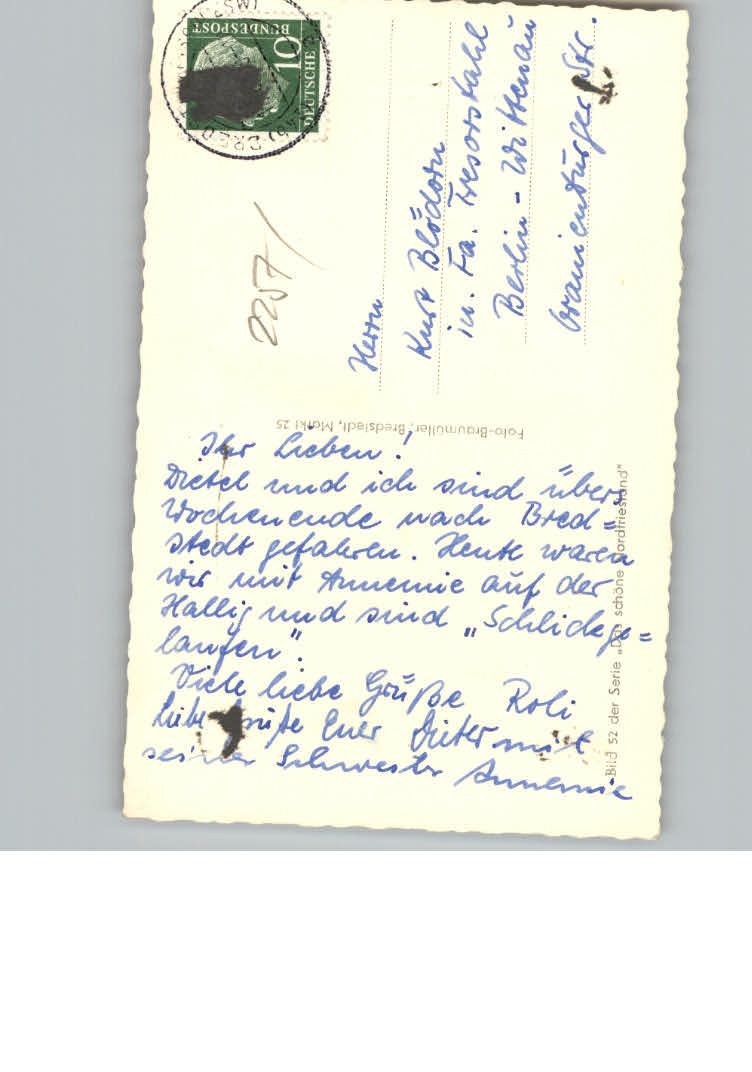 DEUTSCHE
BUNDESPOST
10
2257/
Herrn
Kurt Blödorn
in. Fa. Tresorstahl
Berlin - Wittenau
Oranienburger Str.
Foto-Braumüller, Bredstedt, Markt 25
Ihr Lieben!
Dietel und ich sind übers
Wochenende nach Bred=
stedt gefahren. Heute waren
wir mit Annemie auf der
Hallig und sind „Schlickge=
laufen".
Viele liebe Grüße Roli
Liebe Grüße Euer Dieter mit
seiner Schwester Annemie
Bild 52 der Serie „Das schöne Nordfriesland"